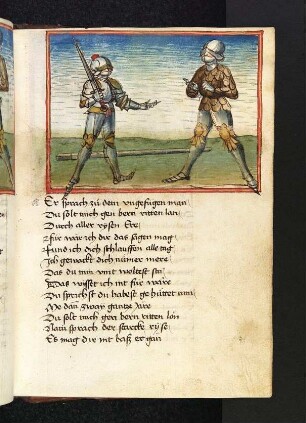 Er sprach zu dem vngefügen man
Du solt mich gen bern ritten lan
Durch aller rysen Ere
Für war ich dir das sagen mag
Fund ich dich schlauffen alle tag
Ich geweckt dich nümer mere
Das du mir mit woltest sin
Das wissest ich nit für ware
Du sprichst du habest gehüttet min
Me dan zway gantze Jare
Du solt mich gen bern ritten lon
Nain sprach der starcke ryse
Es mag dir nit bas er gan